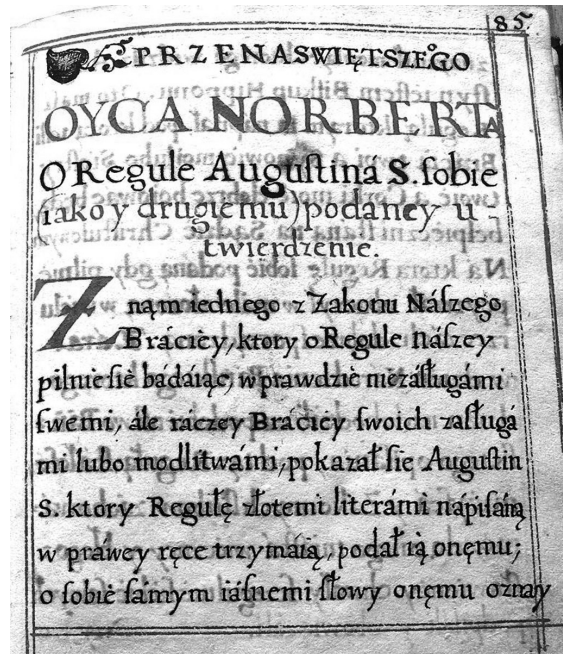 85
PRZENASWIĘTSZEGO
OYCA NORBERTA
O Regule Auguſtiná S. ſobie
(iako y drugiemu) podaney u-
twierdzenie.
Znąm iednego z Zakonu Náſzego
Bráciéy, ktory o Regule náſzey
pilnie ſiè bádáiąc, w prawdziè niezáſługámi
ſwemi, ále ráczey Bráciéy ſwoich zaſługá
mi lubo modlitwámi, pokazał ſie Auguſtin
S. ktory Regułę złotemi literámi nápiſáną
w práwey ręce trzymáią, podał ią onęmu;
o ſobiè ſámym iáſnemi ſłowy onęmu oznay